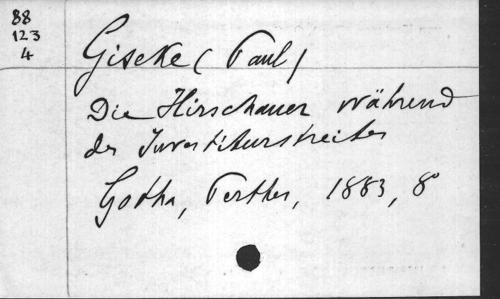 88
123
4
Giseke (Paul)
Die Hirschauer während
des Investiturstreites
Gotha, Perthes, 1883, 8°